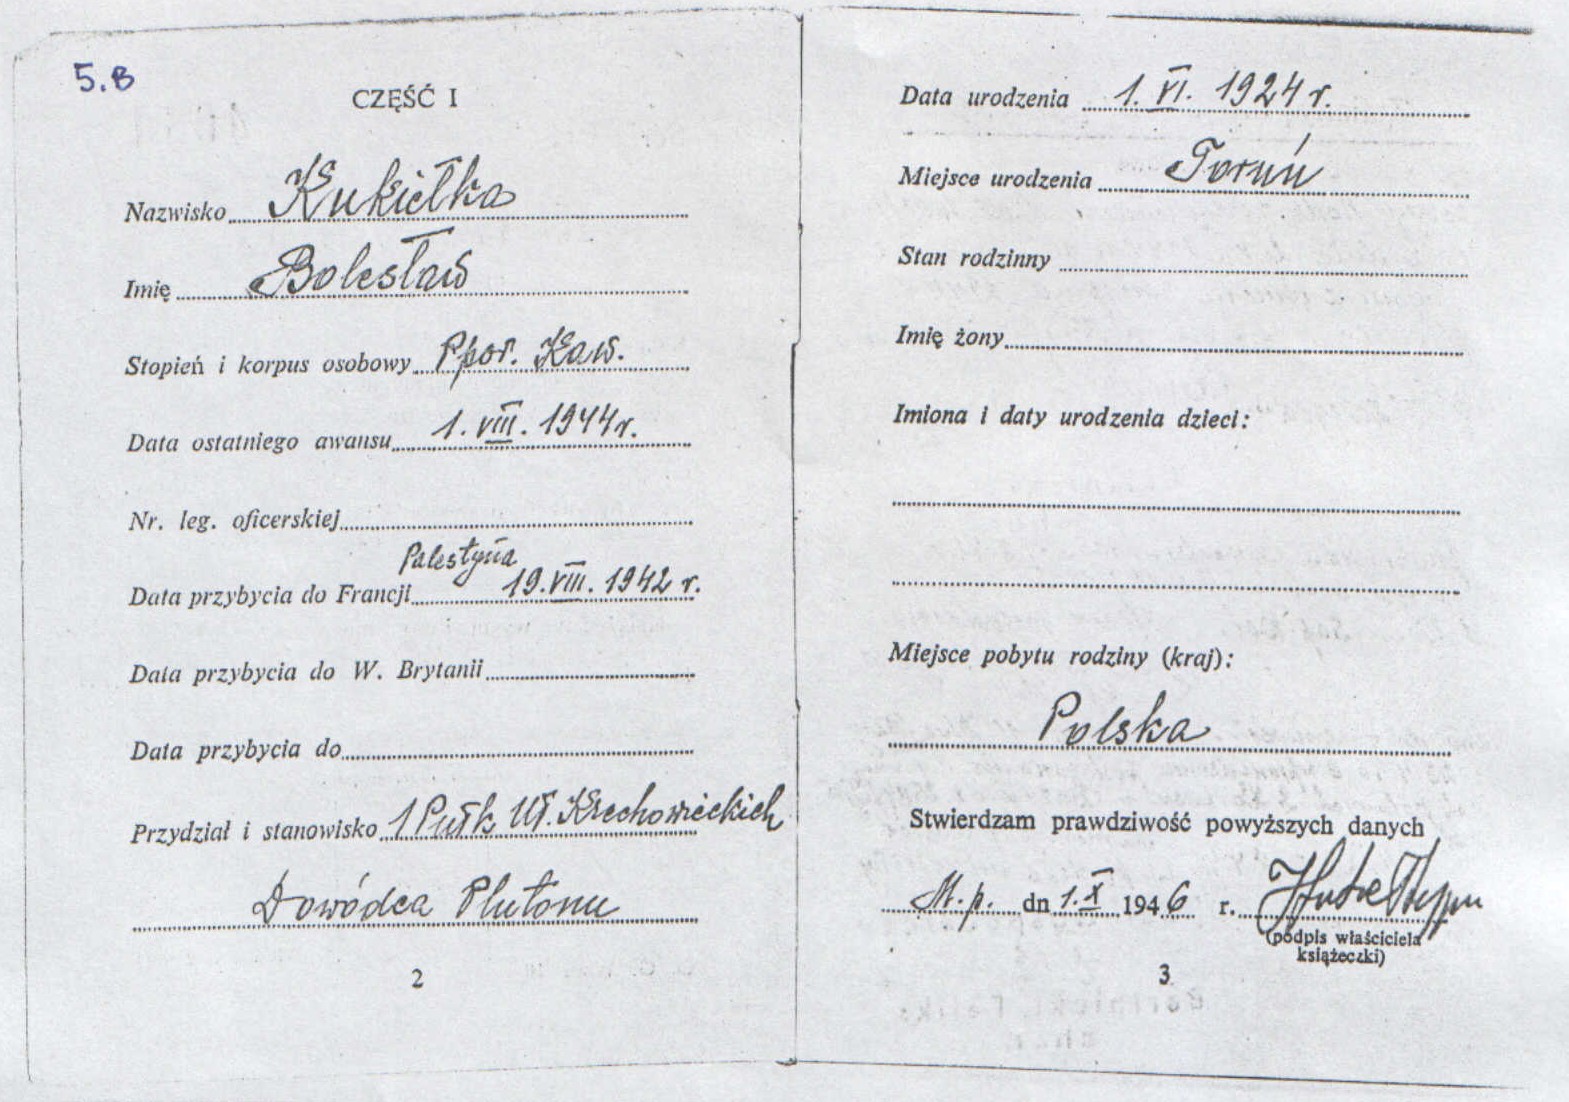 5.B
CZĘŚĆ I
Nazwisko Kukiełka
Imię Bolesław
Stopień i korpus osobowy Ppor. Kaw.
Data ostatniego awansu 1. VIII. 1944 r.
Nr. leg. oficerskiej
Palestyna
Data przybycia do Francji 19. VIII. 1942 r.
Data przybycia do W. Brytanii
Data przybycia do
Przydział i stanowisko 1 Pułk Uł. Krechowieckich
Dowódca Plutonu
2
Data urodzenia 1. VI. 1924 r.
Miejsce urodzenia Toruń
Stan rodzinny
Imię żony
Imiona i daty urodzenia dzieci:
Miejsce pobytu rodziny (kraj):
Polska
Stwierdzam prawdziwość powyższych danych
M.p. dn 1. X 1946 r.
(podpis właściciela
książeczki)
3